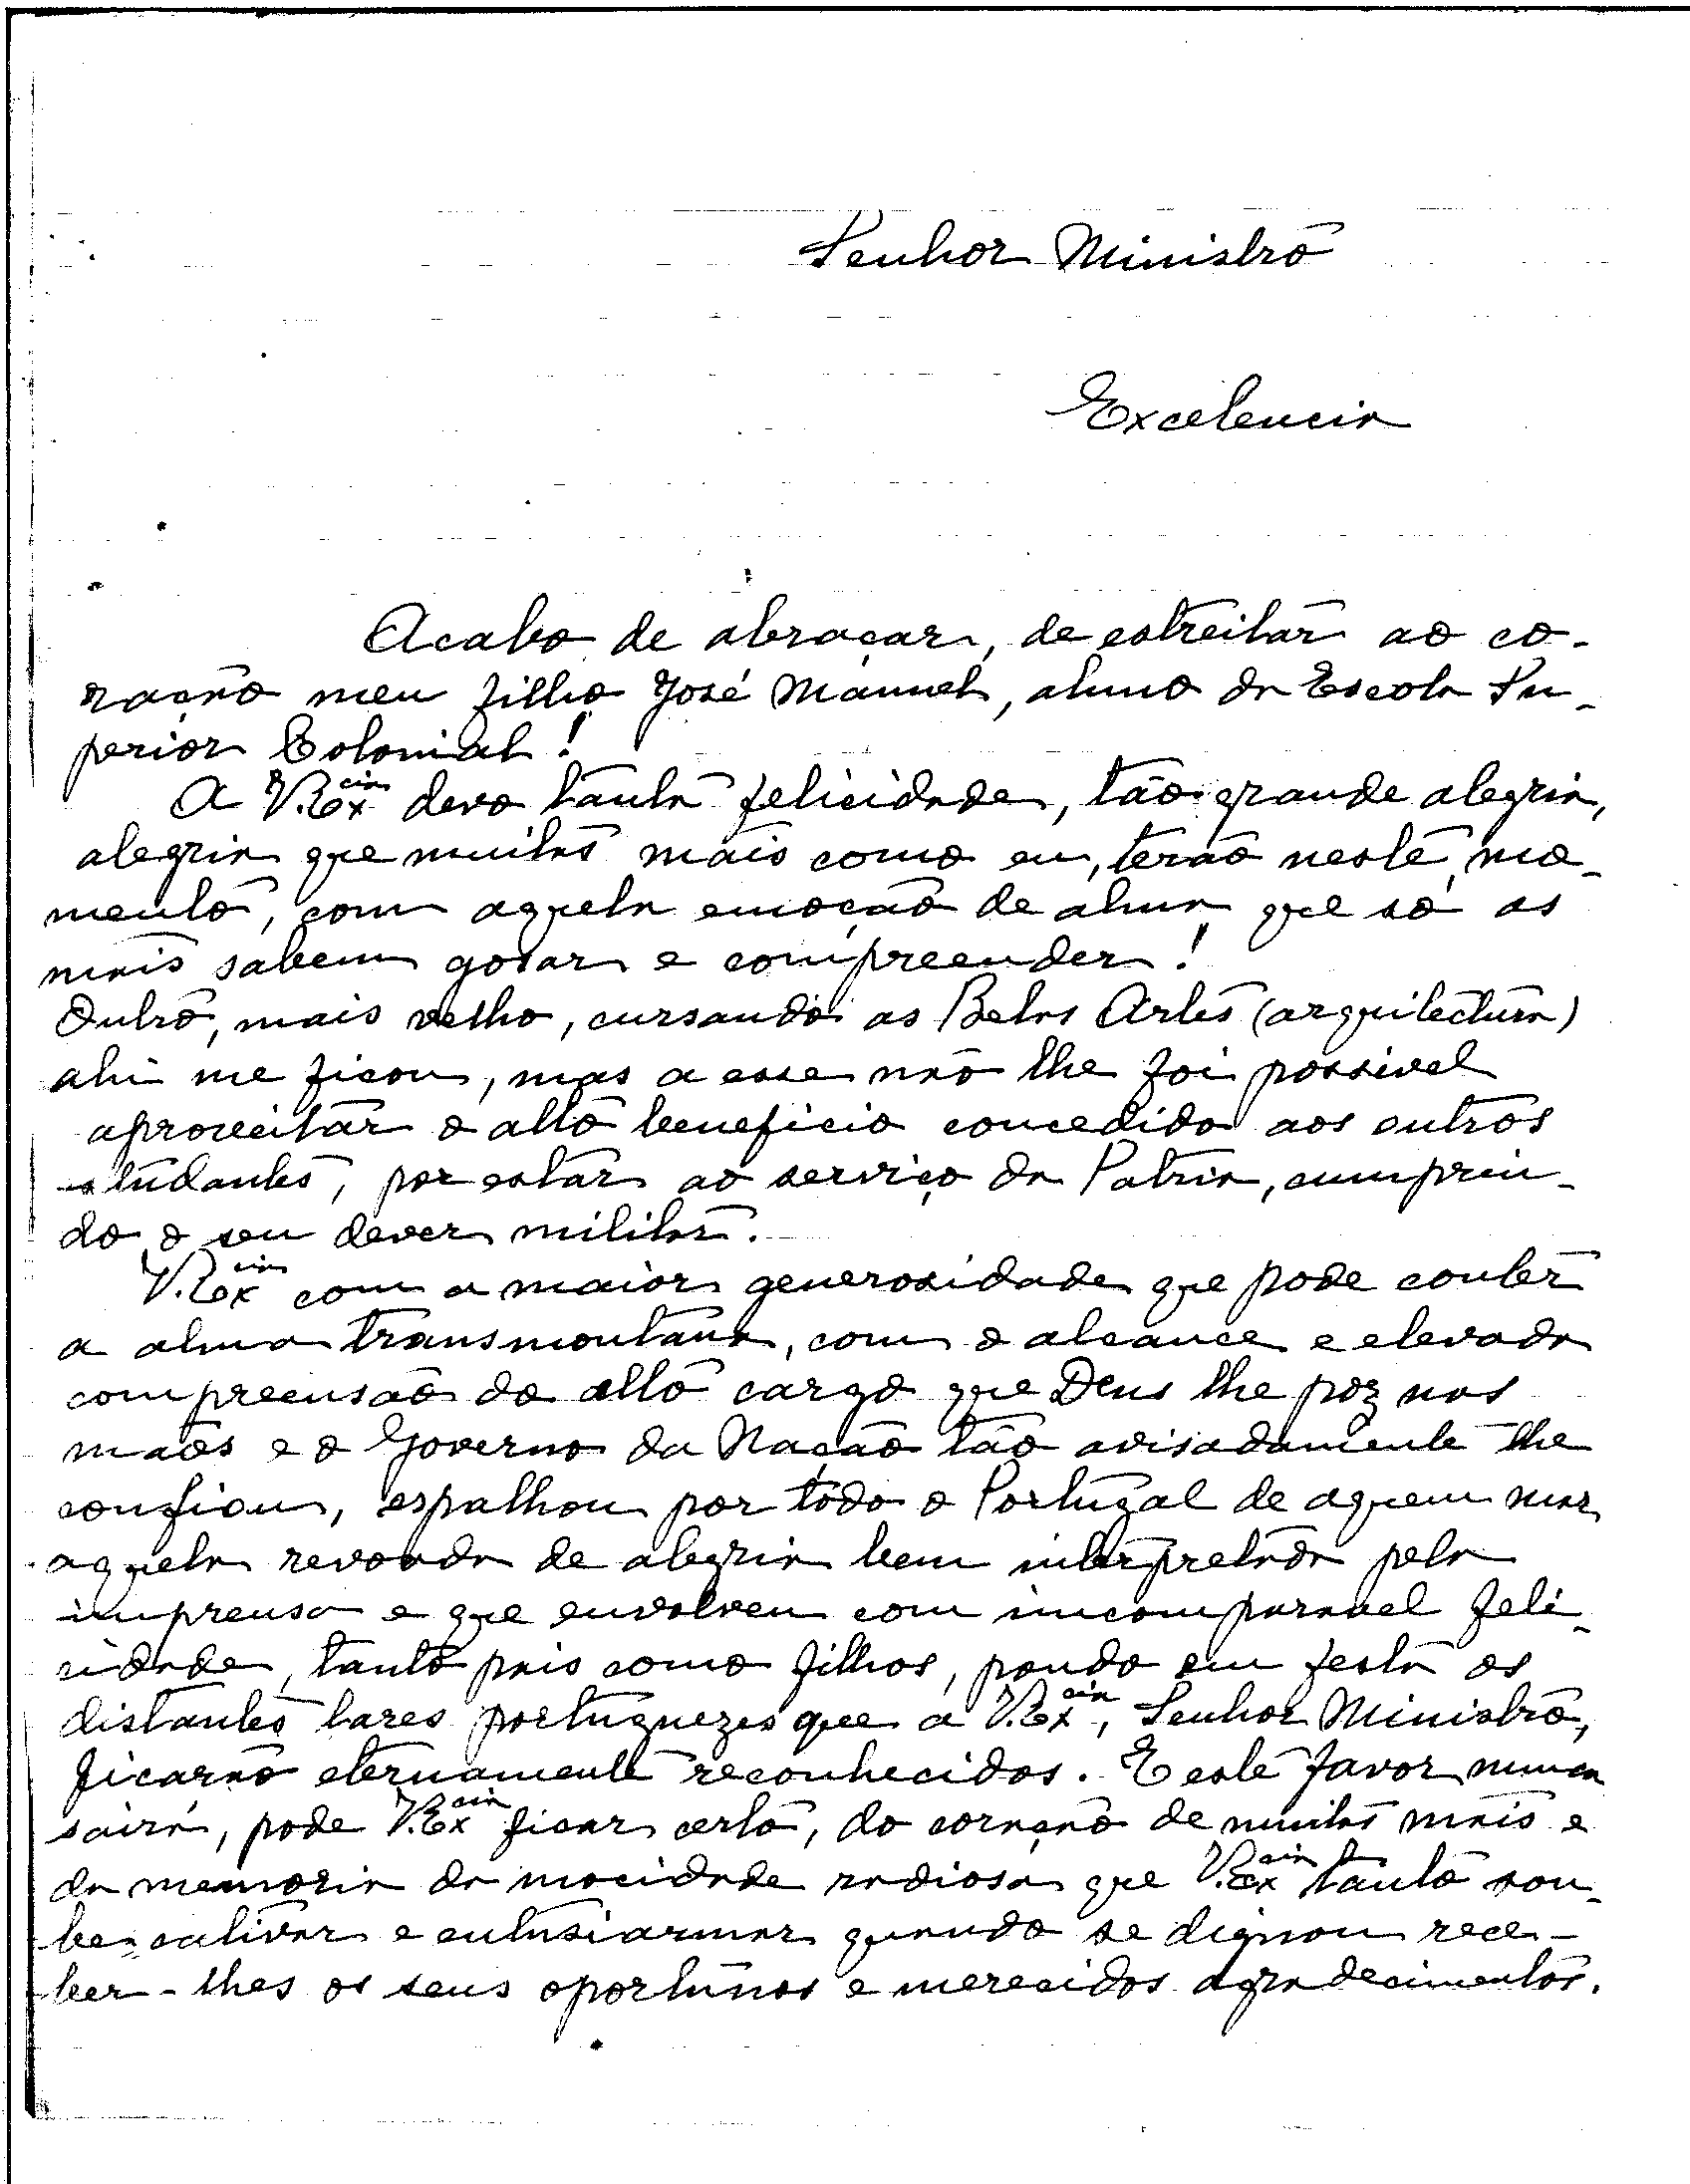 Senhor Ministro
Excelencia
Acabo de abraçar, de estreitar ao co-
ração meu filho José Manuel, aluno da Escola Su-
perior Colonial!
A V. Ex.cia devo tanta felicidade, tão grande alegria,
alegria que muitas mais como eu, terão neste mo-
mento, com aquela emoção de alma que só as
mais sabem gosar e compreender!
Outro, mais velho, cursando as Belas Artes (arquitectura)
ahi me ficou, mas a esse não lhe foi possivel
aproveitar o alto beneficio concedido aos outros
studantes, por estar ao serviço da Patria, cumprin-
do o seu dever militar.
V. Ex.cia com a maior generosidade que pode conter
a alma transmontana, com o alcance e elevada
compreensão do alto cargo que Deus lhe poz nas
mãos e o Governo da Nação tão avisadamente lhe
confiou, espalhou por todo o Portugal de aquem mar
aquela revoada de alegria bem interpretada pela
imprensa e que envolveu com imcomparavel feli-
cidade, tanto pais como filhos, pondo em festa os
distantes lares portuguezes que a V. Ex.cia, Senhor Ministro,
ficarão eternamente reconhecidos. E este favor nunca
sairá, pode V. Ex.cia ficar certo, do coração de muitas mais e
da memoria da mocidade radiosa que V. Ex.cia tanto sou-
be cativar e entusiasmar quando se dignou rece-
ber-lhes os seus oportunos e merecidos agradecimentos.